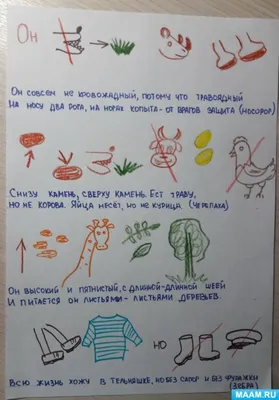 Он
Он совсем не кровожадный, потому что травоядный
На носу два рога, на ногах копыта - от врагов защита (носорог)
Снизу камень, сверху камень. Ест траву,
но не корова. Яйца несёт, но не курица (черепаха)
Он высокий и пятнистый, с длинной-длинной шеей
И питается он листьями - листьями деревьев.
но
Всю жизнь хожу в тельняшке, но без сапог и без фуражки
(зебра)
MAAM.RU